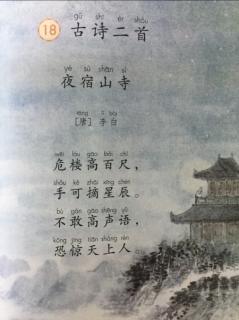 18 gǔ shī èr shǒu
古诗二首
yè sù shān sì
夜宿山寺
táng lǐ bái
[唐] 李白
wēi lóu gāo bǎi chǐ
危楼高百尺，
shǒu kě zhāi xīng chén
手可摘星辰。
bù gǎn gāo shēng yǔ
不敢高声语，
kǒng jīng tiān shàng rén
恐惊天上人。